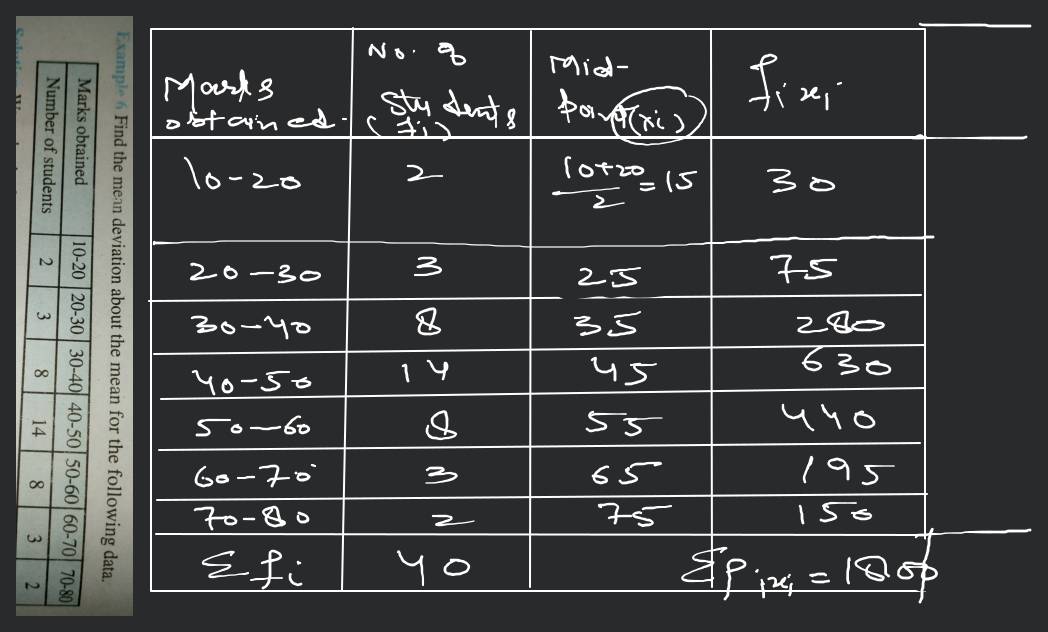 Example 6 Find the mean deviation about the mean for the following data.
Marks obtained 10-20 20-30 30-40 40-50 50-60 60-70 70-80
Number of students 2 3 8 14 8 3 2
Marks obtained No. of students (fi) Mid-point (xi) fi xi
10-20 2 10+20/2 = 15 30
20-30 3 25 75
30-40 8 35 280
40-50 14 45 630
50-60 8 55 440
60-70 3 65 195
70-80 2 75 150
Σfi 40 Σfixi = 1800